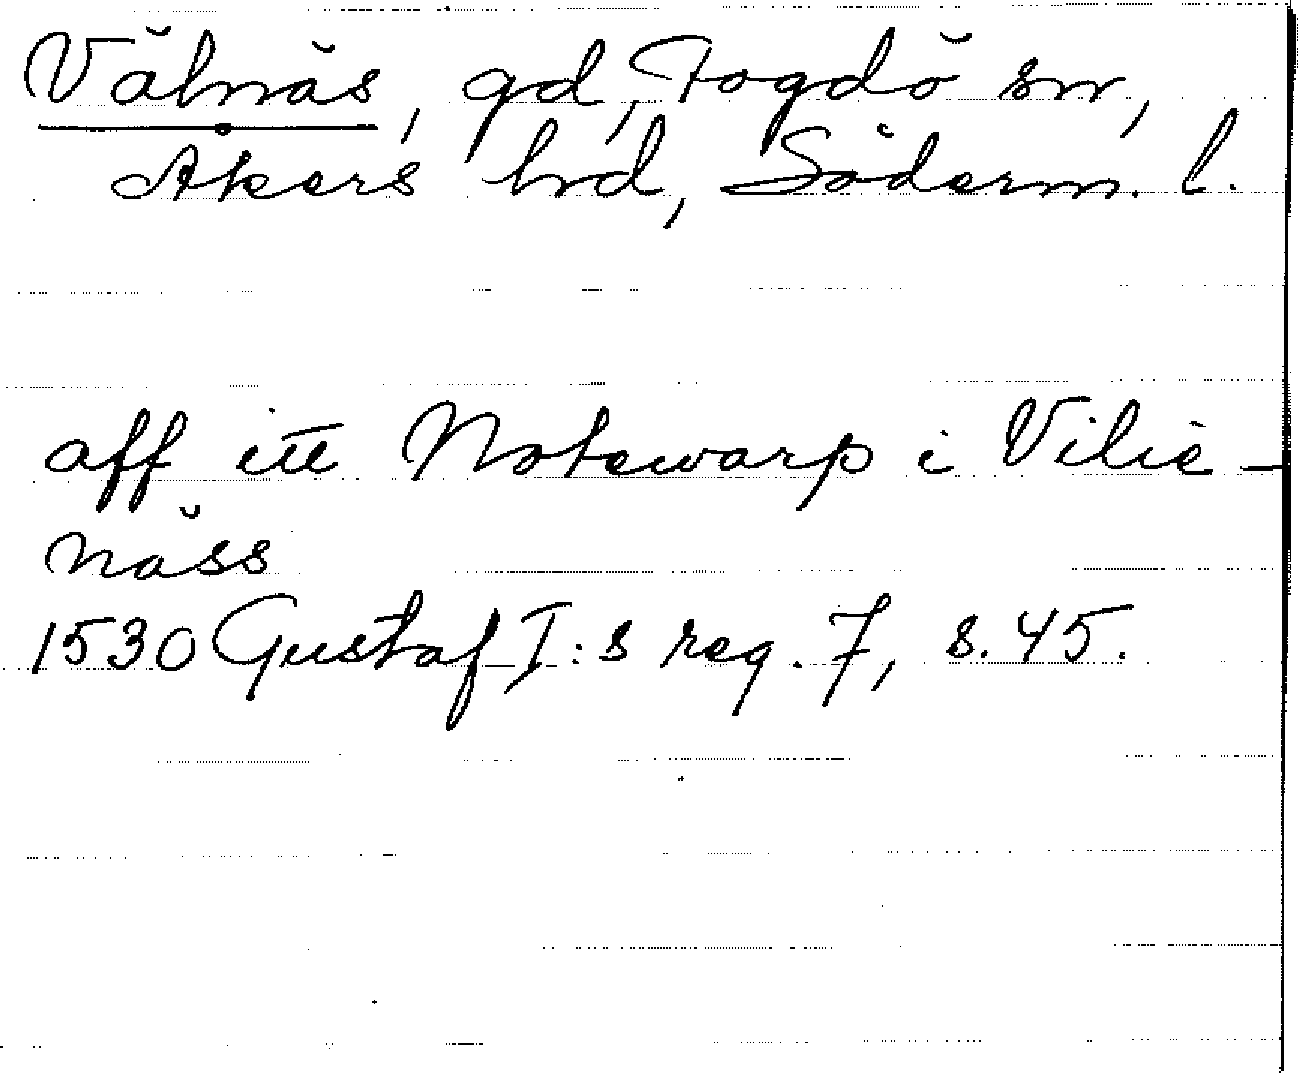 Välnäs, gd, Fogdö sn,
Åkers hd, Söderm. l.
aff itt Notewarp i Vilie-
näss
1530 Gustaf I:s reg. 7, s. 45.